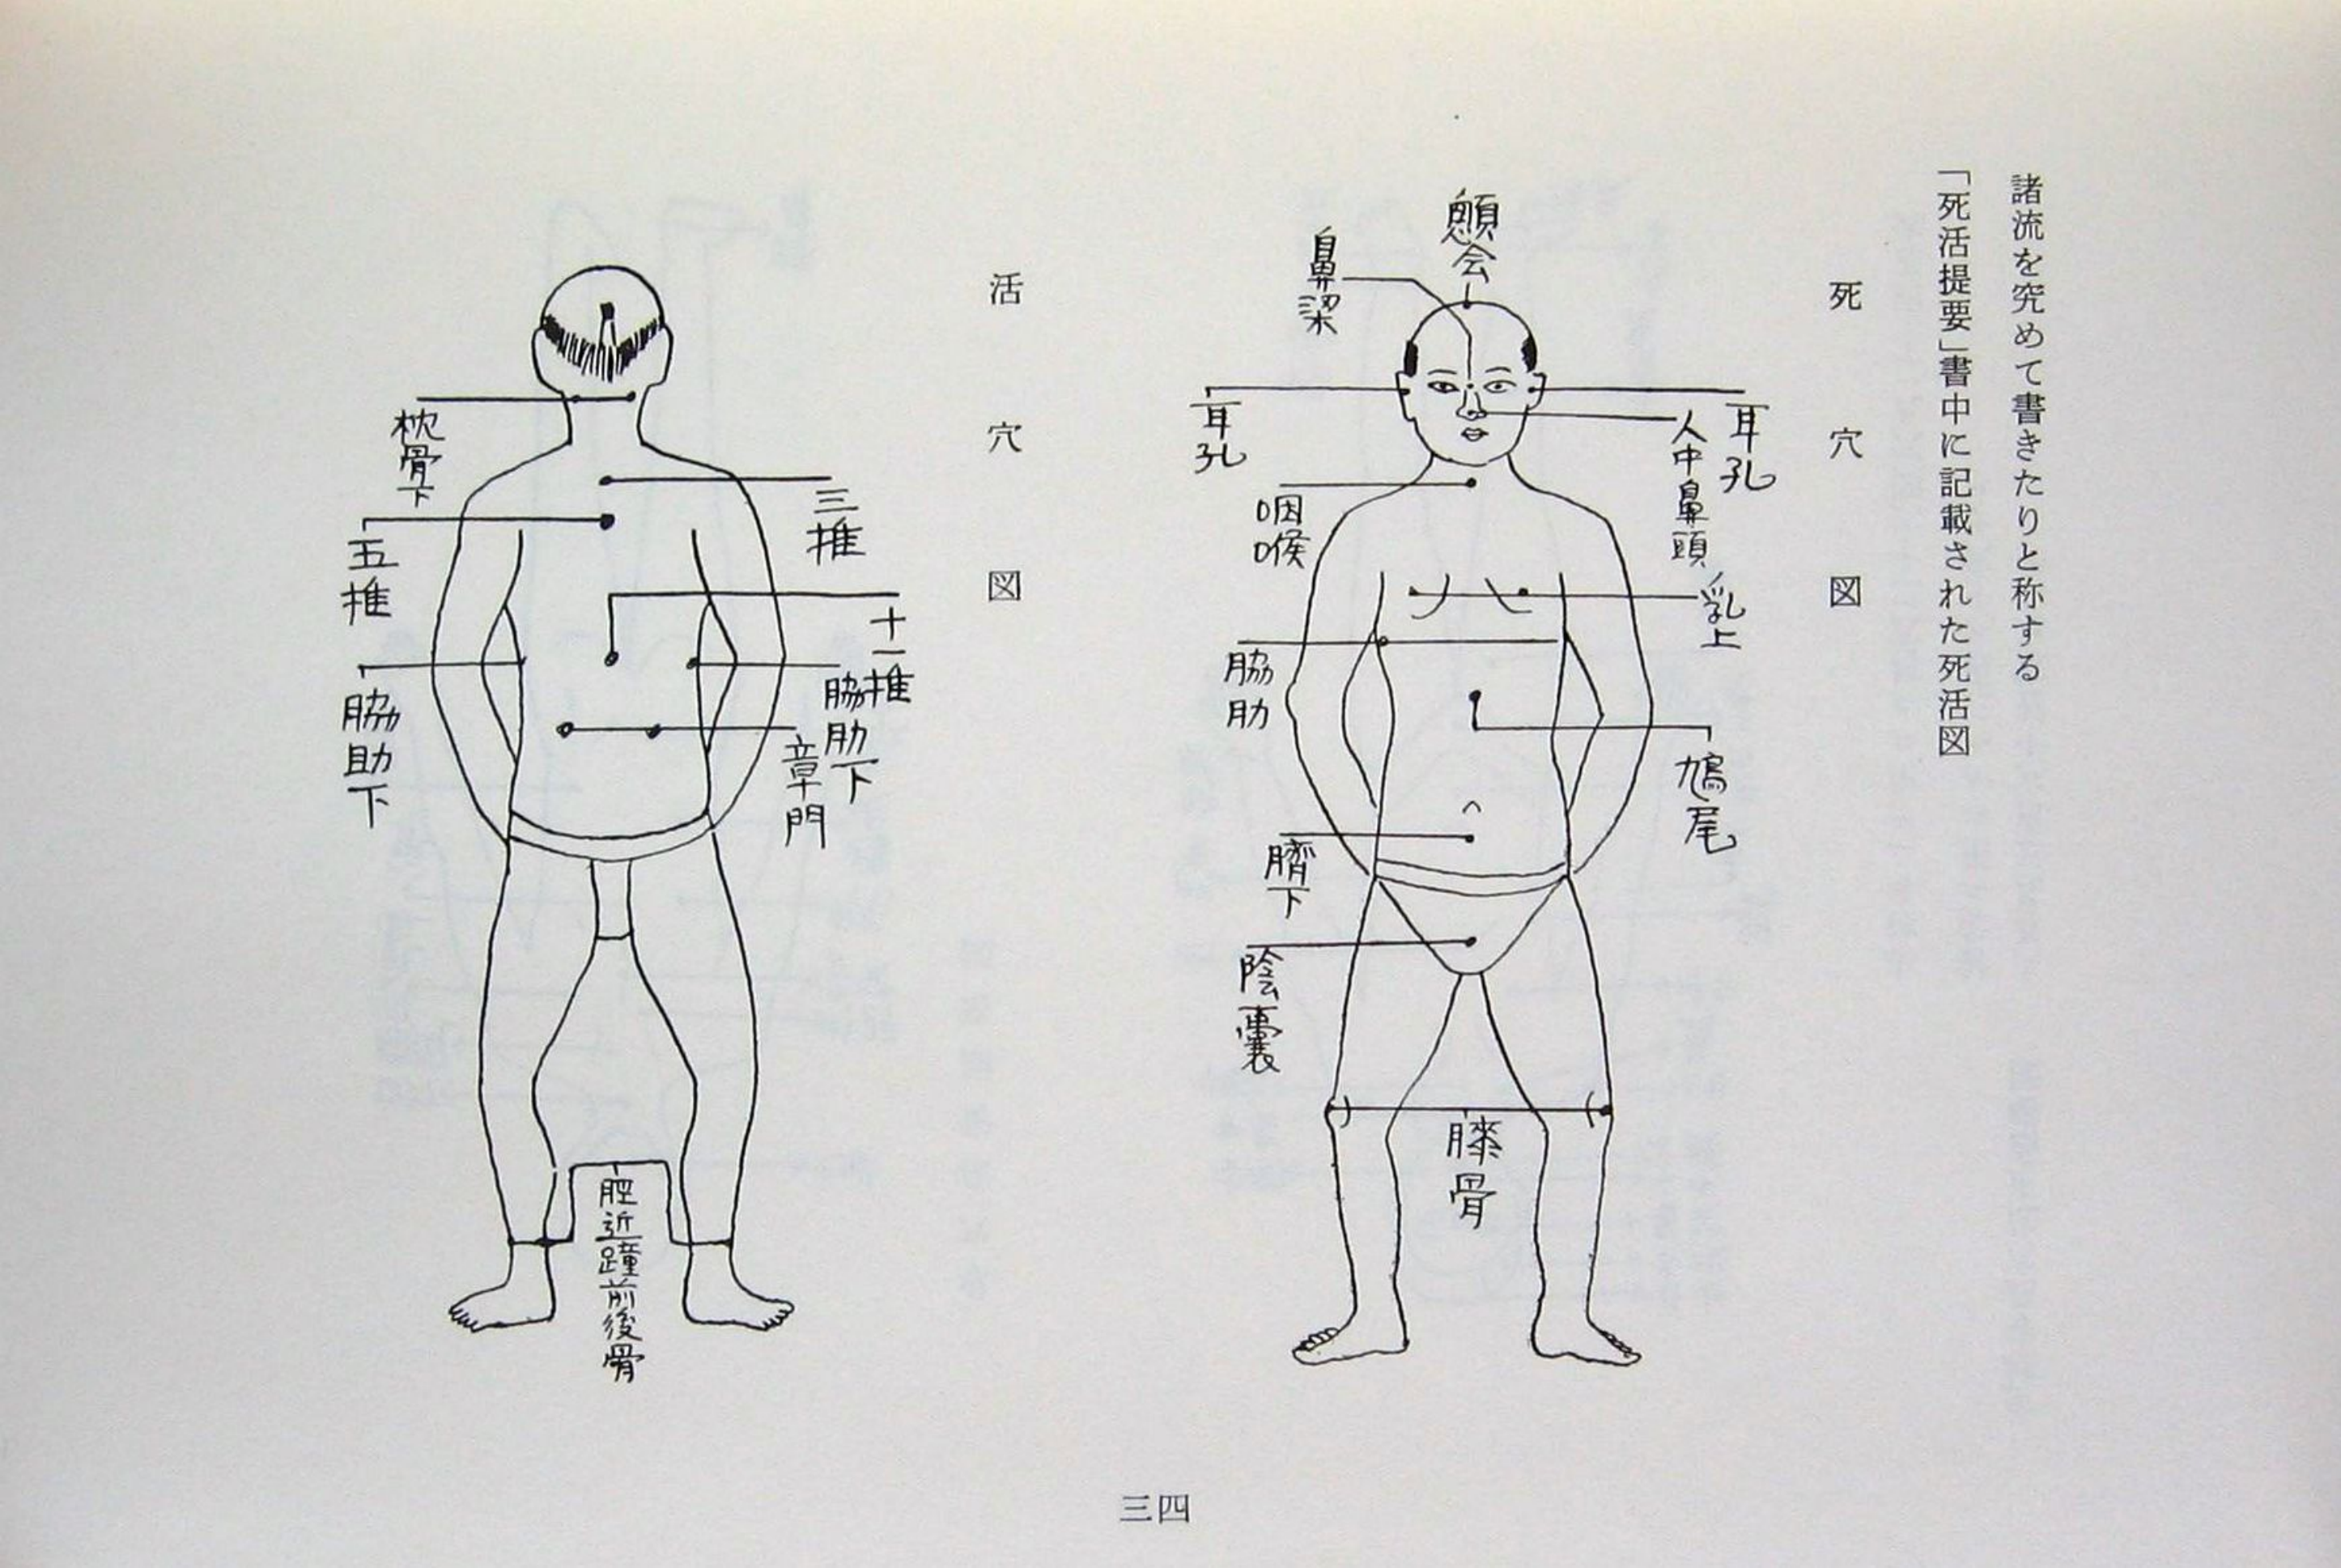 諸流を究めて書きたりと称する
「死活提要」書中に記載された死活図
死穴図
会
鼻梁
耳孔
人中鼻頭
耳孔
咽喉
乳上
脇肋
鳩尾
臍下
陰嚢
膝骨
活穴図
枕骨下
三推
五推
十一推
脇肋下
脇助下
章門
脛近踵前後骨
三四